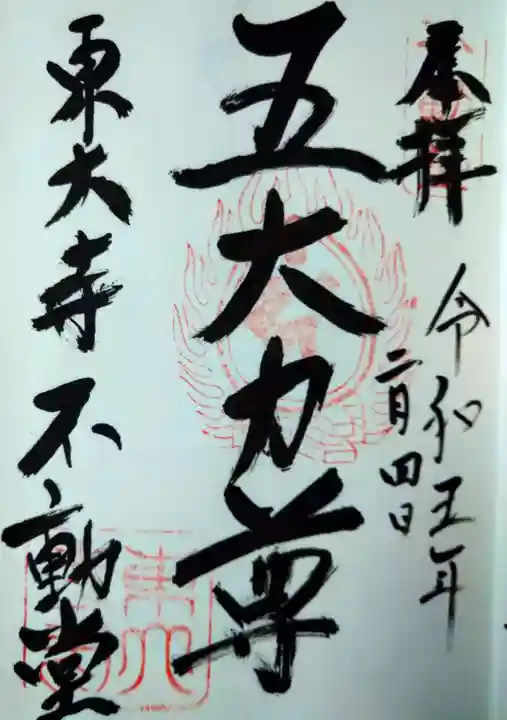 奉拝
令和五年
二月四日
五大力尊
東大寺不動堂